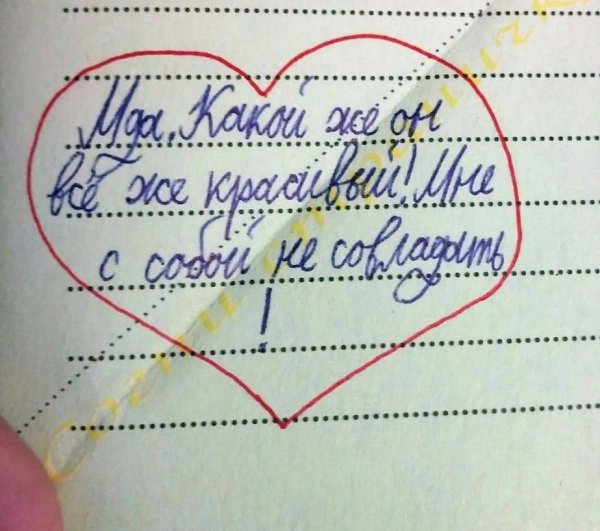 Мда. Какой же он
всё же красивый! Мне
с собой не совладать
!